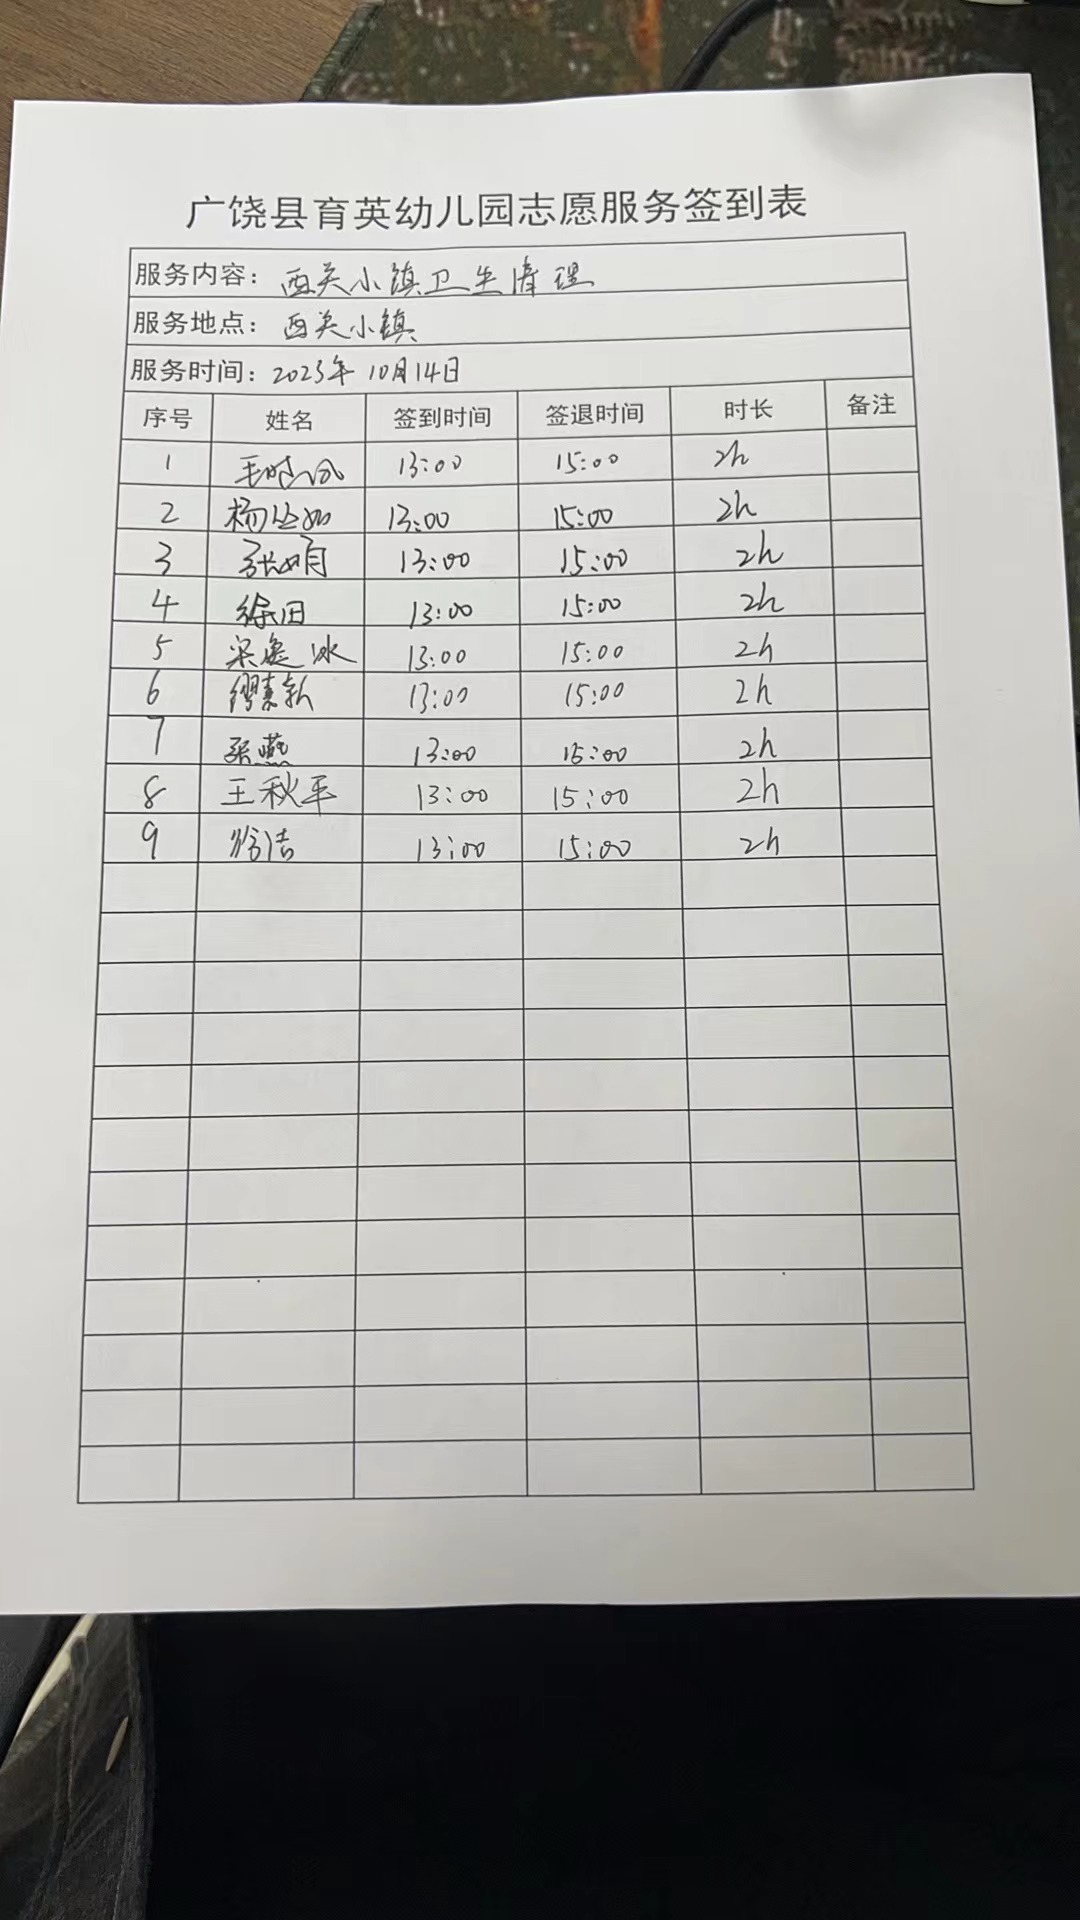 广饶县育英幼儿园志愿服务签到表
服务内容：西关小镇卫生清理
服务地点：西关小镇
服务时间：2023年10月14日
序号 姓名 签到时间 签退时间 时长 备注
1 13:00 15:00 2h
2 杨 13:00 15:00 2h
3 张娟 13:00 15:00 2h
4 徐田 13:00 15:00 2h
5 冰 13:00 15:00 2h
6 13:00 15:00 2h
7 张燕 13:00 15:00 2h
8 王秋平 13:00 15:00 2h
9 洁 13:00 15:00 2h